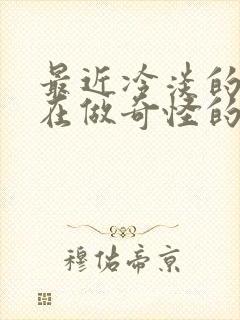 最近冷淡的
在做奇怪的
穆佑帝京